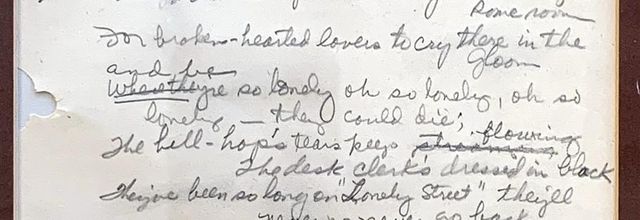 some room
For broken-hearted lovers to cry there in the
gloom
and be
Where they're so lonely oh so lonely, oh so
lonely — they could die;
The bell-hop's tears keep streaming flowing
The desk clerk's dressed in black
They've been so long on "Lonely Street" they'll
never never go back